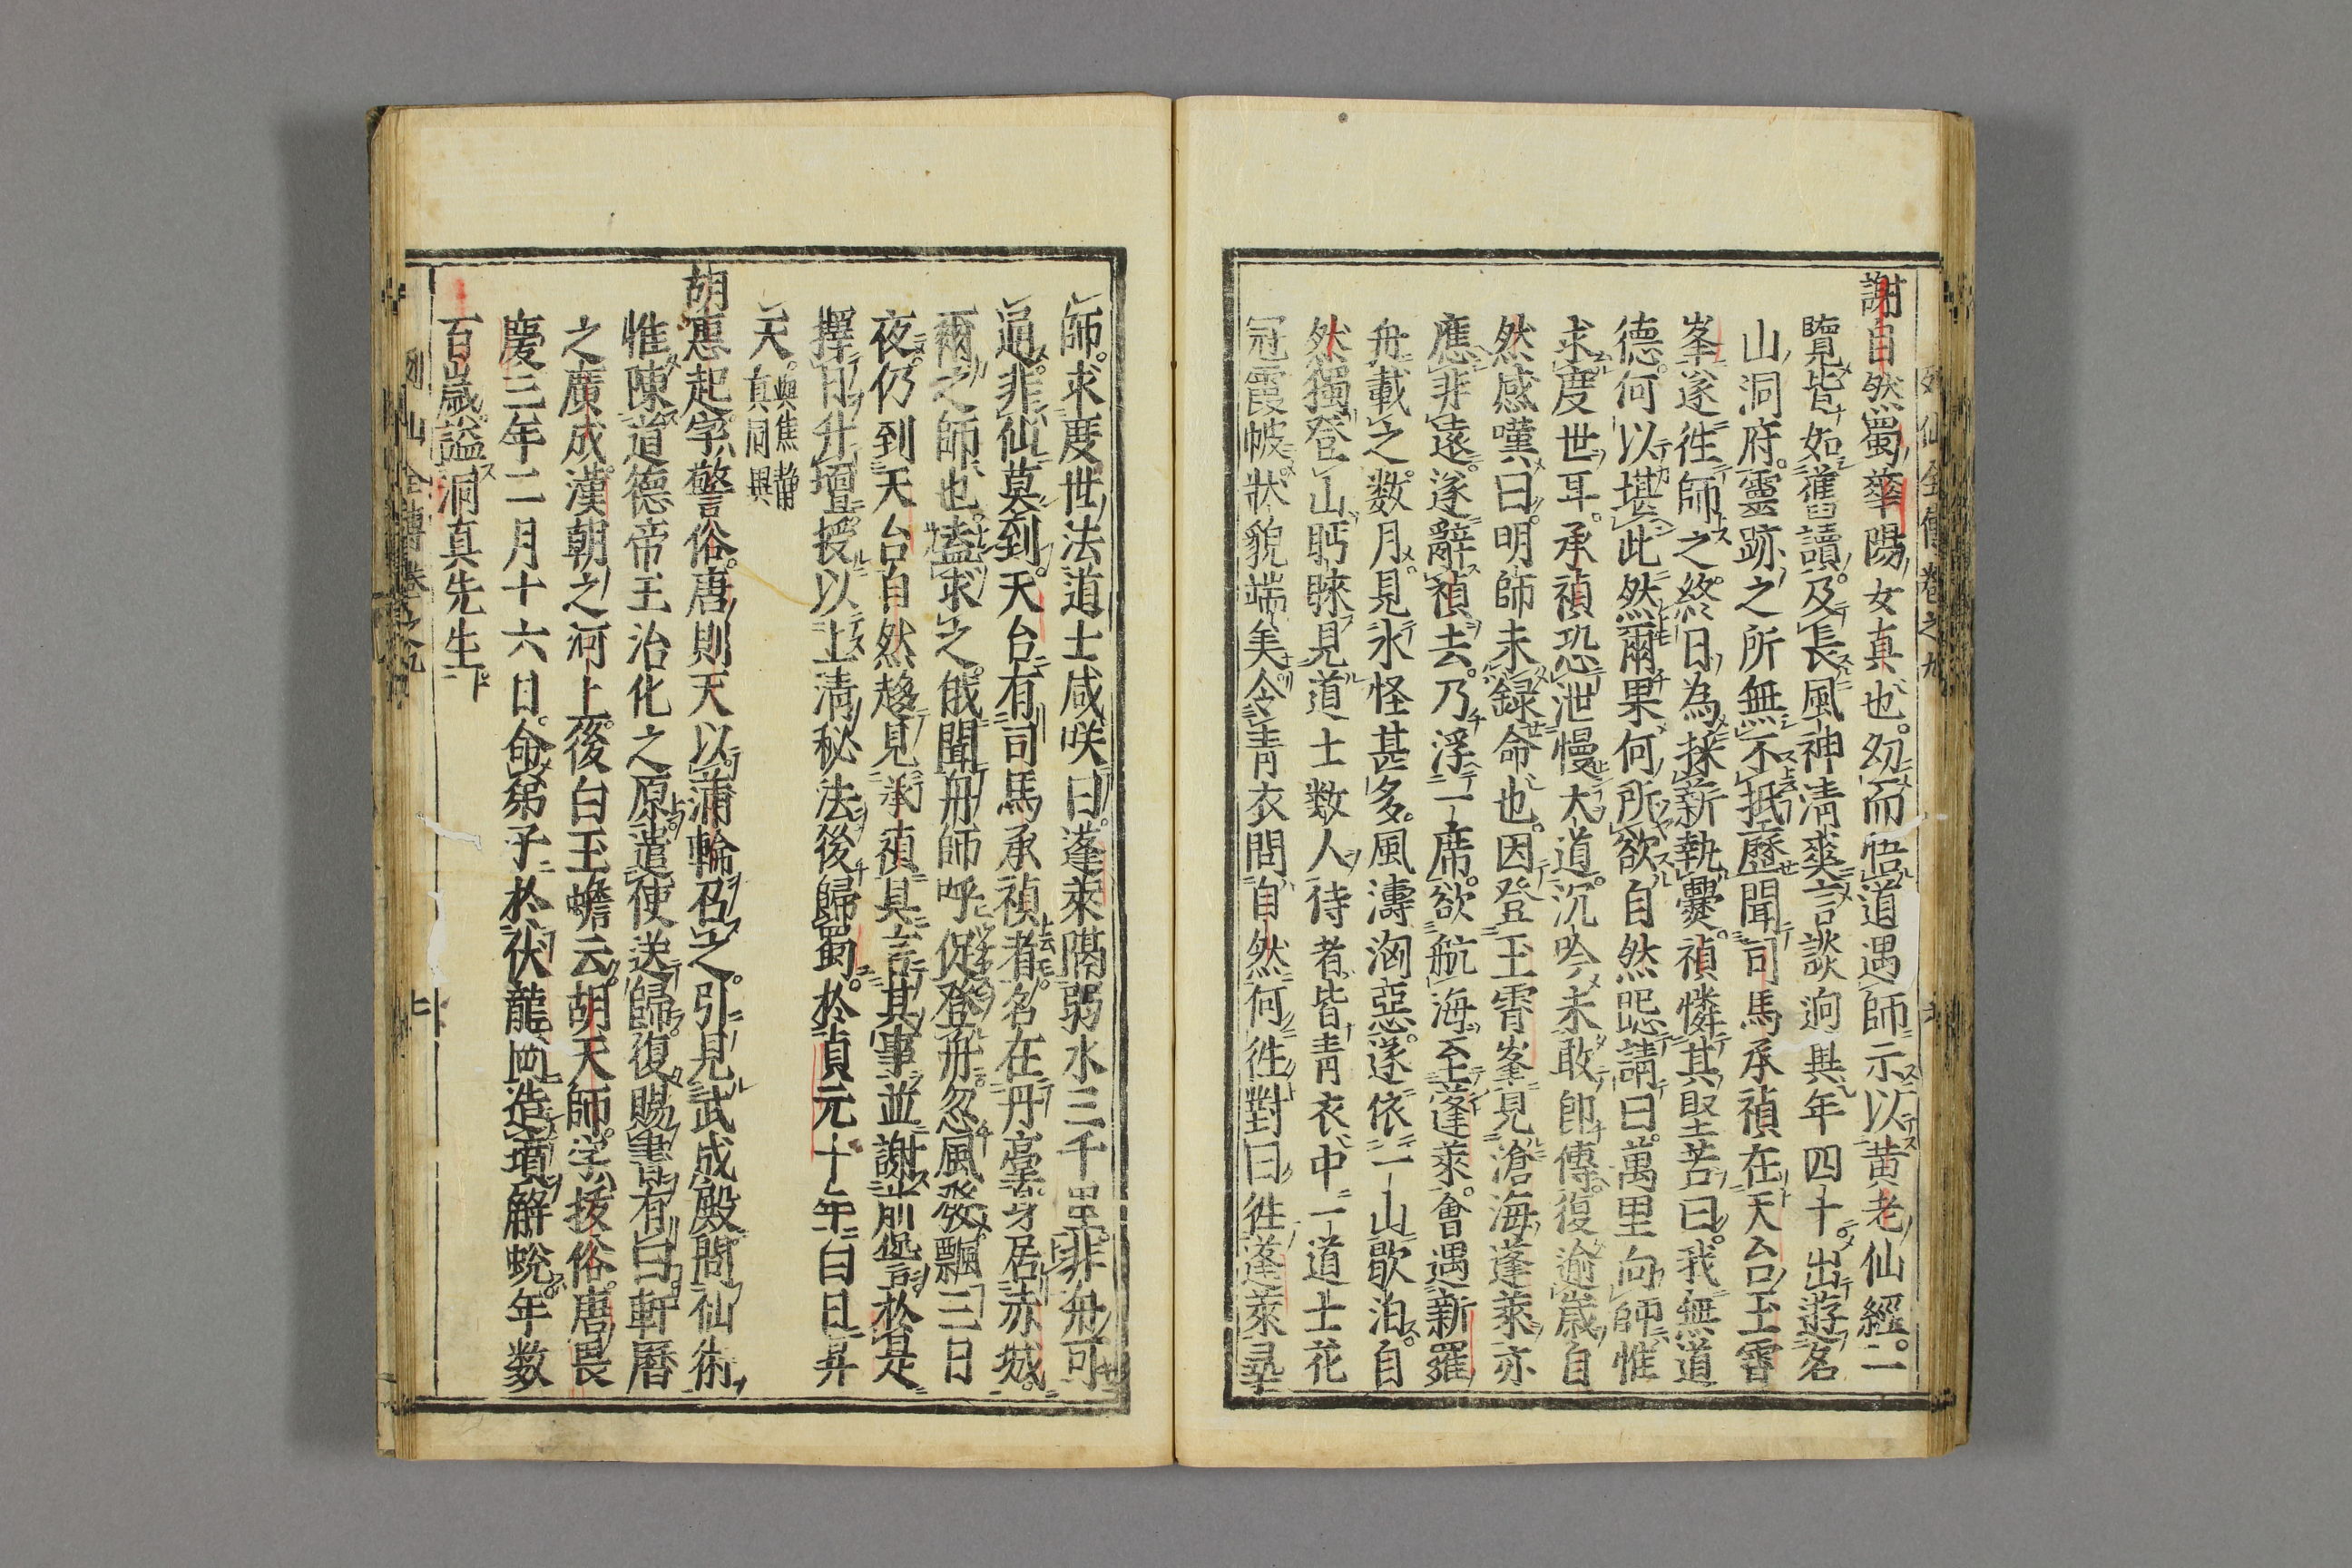 謝自然蜀華陽女真也。幼而悟道遇師示以黄老仙經。一
覽皆如舊讀。及長風神清爽言談迥異年四十出遊名
山洞府。靈跡之所無不抵歷聞司馬承禎在天台玉霄
峯遂徃師之。終日為採薪執爨。禎憐其堅苦曰。我無道
德。何以堪此然爾果何所欲自然跽請曰。萬里向師惟
求度世耳。承禎恐泄慢大道。沉吟未敢即傳。復逾歲自
然感嘆曰。明師未録命也。因登玉霄峯見滄海蓬萊亦
應非遠。遂辭禎去。乃浮一席。欲航海至蓬萊。會遇新羅
舟載之。数月。見水怪甚多。風濤洶惡。遂依一山歇泊。自
然獨登山眄睞見道士数人侍者皆青衣中一道士花
冠霞帔狀貌端美令青衣問自然何徃對曰徃蓬萊尋
師。求度世法道士咸咲曰。蓬萊隔弱水三千里。非舟可
通。非仙莫到。天台有司馬承禎者。名在丹臺身居赤城。
爾之師也盍求之。俄聞舟師呼促登舟忽風發飄三日
夜。仍到天台自然趍見承禎具言其事並謝前愆於是
擇日升壇授以上清秘法後歸蜀。於貞元十年白日昇
天。與焦静真同異
胡惠起字警俗。唐則天以蒲輪召之。引見武成殿問仙術
惟陳道德帝王治化之原遣使送歸。復賜書有曰。軒曆
之廣成。漢朝之河上。後白玉蟾云。胡天師。字拔俗。唐畏
慶三年二月十六日。命弟子於伏龍岡造墳解蛻。年数
百歲。謚洞真先生
列仙全傳卷之九
列仙全傳卷之九